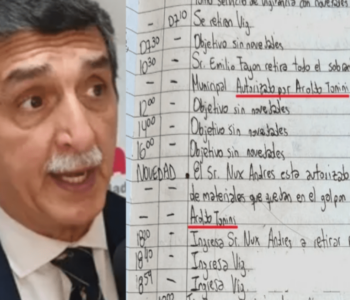 0710 - Se retira Vig.
0730 - Objetivo sin novedades
1030 - Sr. Emilio Fayon retira todo el sobra
- - Municipal Autorizado por Aroldo Tonini
1200 - Objetivo sin novedades
1400 - Objetivo sin novedades
1600 - Objetivo sin novedades
NOVEDAD - el Sr. Nux Andres esta autorizado
- - de materiales que quedan en el golpon
- - Aroldo Tonini
1810 - Ingresa Sr. Nux Andres a retirar
1840 - Ingresa Vig.
1859 - Ingresa Vig